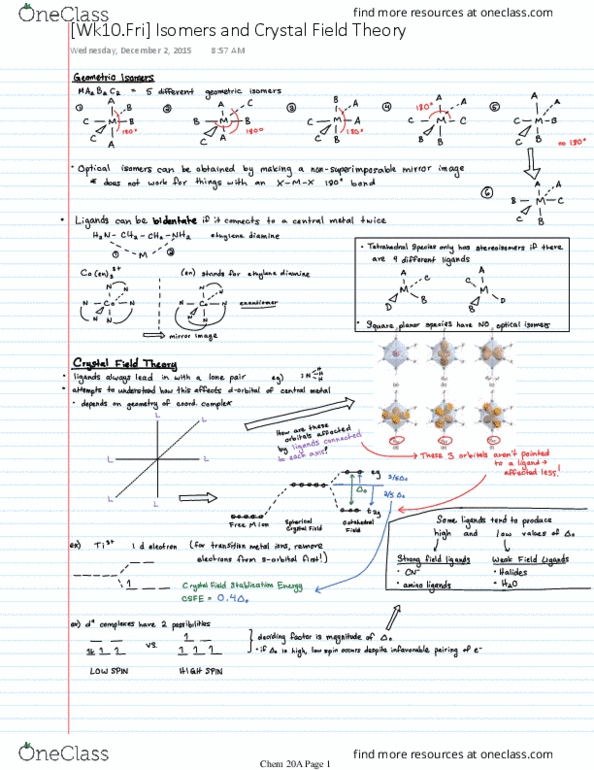 OneClass
find more resources at oneclass.com
[Wk10.Fri] Isomers and Crystal Field Theory
Wednesday, December 2, 2015 8:57 AM
Geometric Isomers
MA2B2C2 = 5 different geometric isomers
① ② ③ ④ ⑤
180° 180° 180° 180° no 180°
• Optical isomers can be obtained by making a non-superimposable mirror image
* does not work for things with an X-M-X 180° bond
⑥
• Ligands can be bidentate if it connects to a central metal twice
H2N-CH2-CH2-NH2 ethylene diamine
① M ②
Co(en)3 3+ (en) stands for ethylene diamine
enantiomer
mirror image
• Tetrahedral species only has stereoisomers if there
are 4 different ligands
• Square planar species have NO optical isomers
Crystal Field Theory
• ligands always lead in with a lone pair eg)
• attempts to understand how this affects d-orbital of central metal
• depends on geometry of coord. complex
How are these
orbitals affected
by ligands connected
to each axis?
These 3 orbitals aren't pointed
to a ligand →
affected less!
L L L L L L
eg 3/5Δo
Δo
2/5Δo
t2g
Free M ion
Spherical Crystal Field
Octahedral Field
ex) Ti3+ 1 d electron (for transition metal ions, remove
electrons from s-orbital first!)
Crystal Field Stabilization Energy
CSFE = 0.4Δo
Some ligands tend to produce
high and low values of Δo
Strong field ligands
• CN-
• amino ligands
Weak Field Ligands
• Halides
• H2O
ex) d4 complexes have 2 possibilities
vs.
LOW SPIN HIGH SPIN
deciding factor is magnitude of Δo
• if Δo is high, low spin occurs despite unfavorable pairing of e-
OneClass
find more resources at oneclass.com
Chem 20A Page 1